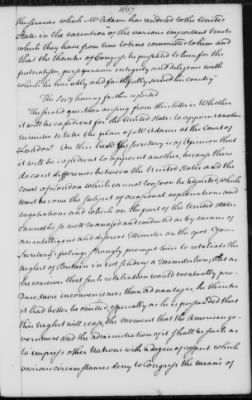 1067
the services which Mr Adams has rendered to the United
States in the execution of the various important trusts
which they have from time to time committed to him and
that the thanks of Congress be presented to him for the
patriotism, perseverance integrity and diligence with
which he has ably and faithfully served his country
The Secy having farther reported
The first question arising from this letter is Whether
it will be expedient for the United States to appoint another
minister to take the place of Mr Adams at the Court of
London On this head the Secretary is of Opinion that
it will be expedient to appoint another, because there
do exist differences between the United States and the
Court of London which cannot too soon be adjusted, which
must become the subject of occasional explanations and
negotiations and which on the part of the United States
cannot be so well managed and conducted as by means of
an intelligent and discreet Minister on the spot. Your
Secretary's feelings strongly prompt him to retaliate the
neglect of Britain in not sending a Minister here, but as
he conceives that such retaliation would eventually pro-
duce more inconveniences than advantages, he thinks
it had better be omitted, especially as he is persuaded that
this neglect will cease, the moment that the American go-
vernment and the administration of it shall be such as
to impress other Nations with a degree of respect which
various circumstances deny to Congress the means of